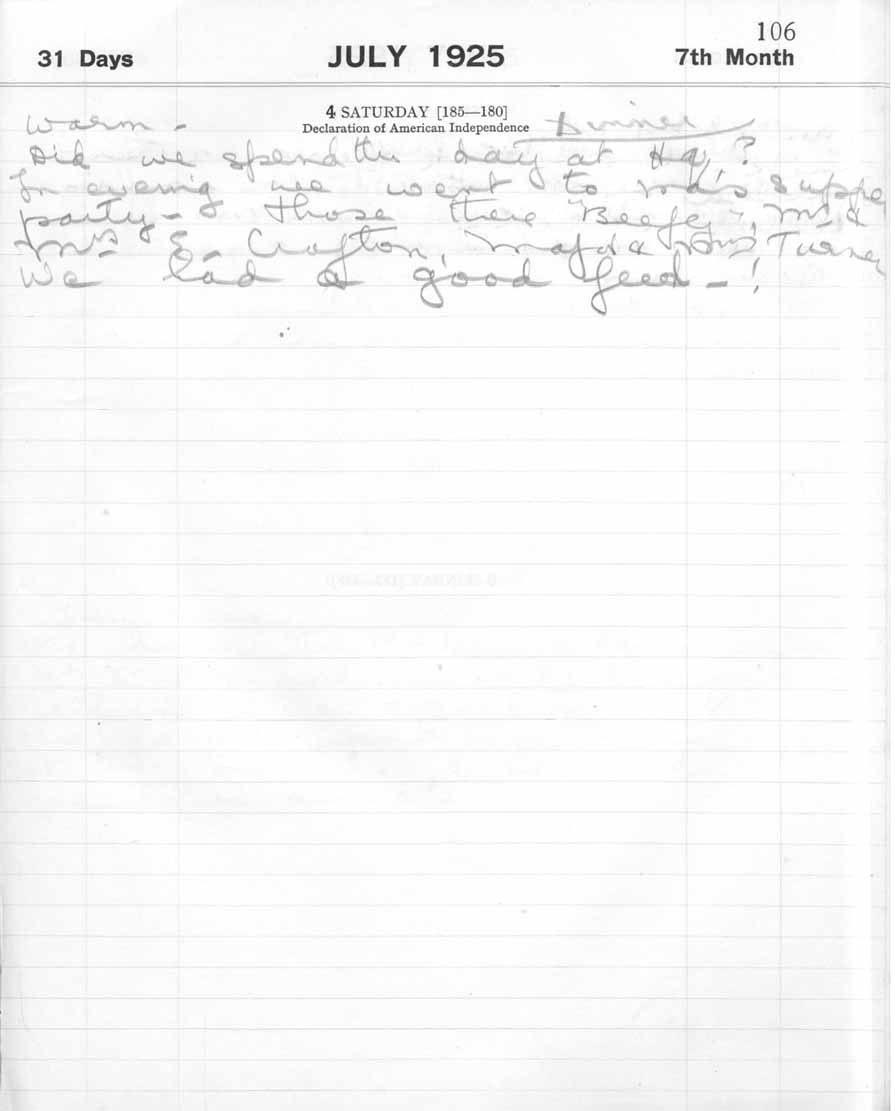 106
31 Days JULY 1925 7th Month
4 SATURDAY [185—180]
Declaration of American Independence
Warm - Dinner
Did we spend the day at ?
In evening we went to
party - those there Mr. &
Mrs E. Crofton, Major & Mrs Turner
We had a good feed - !